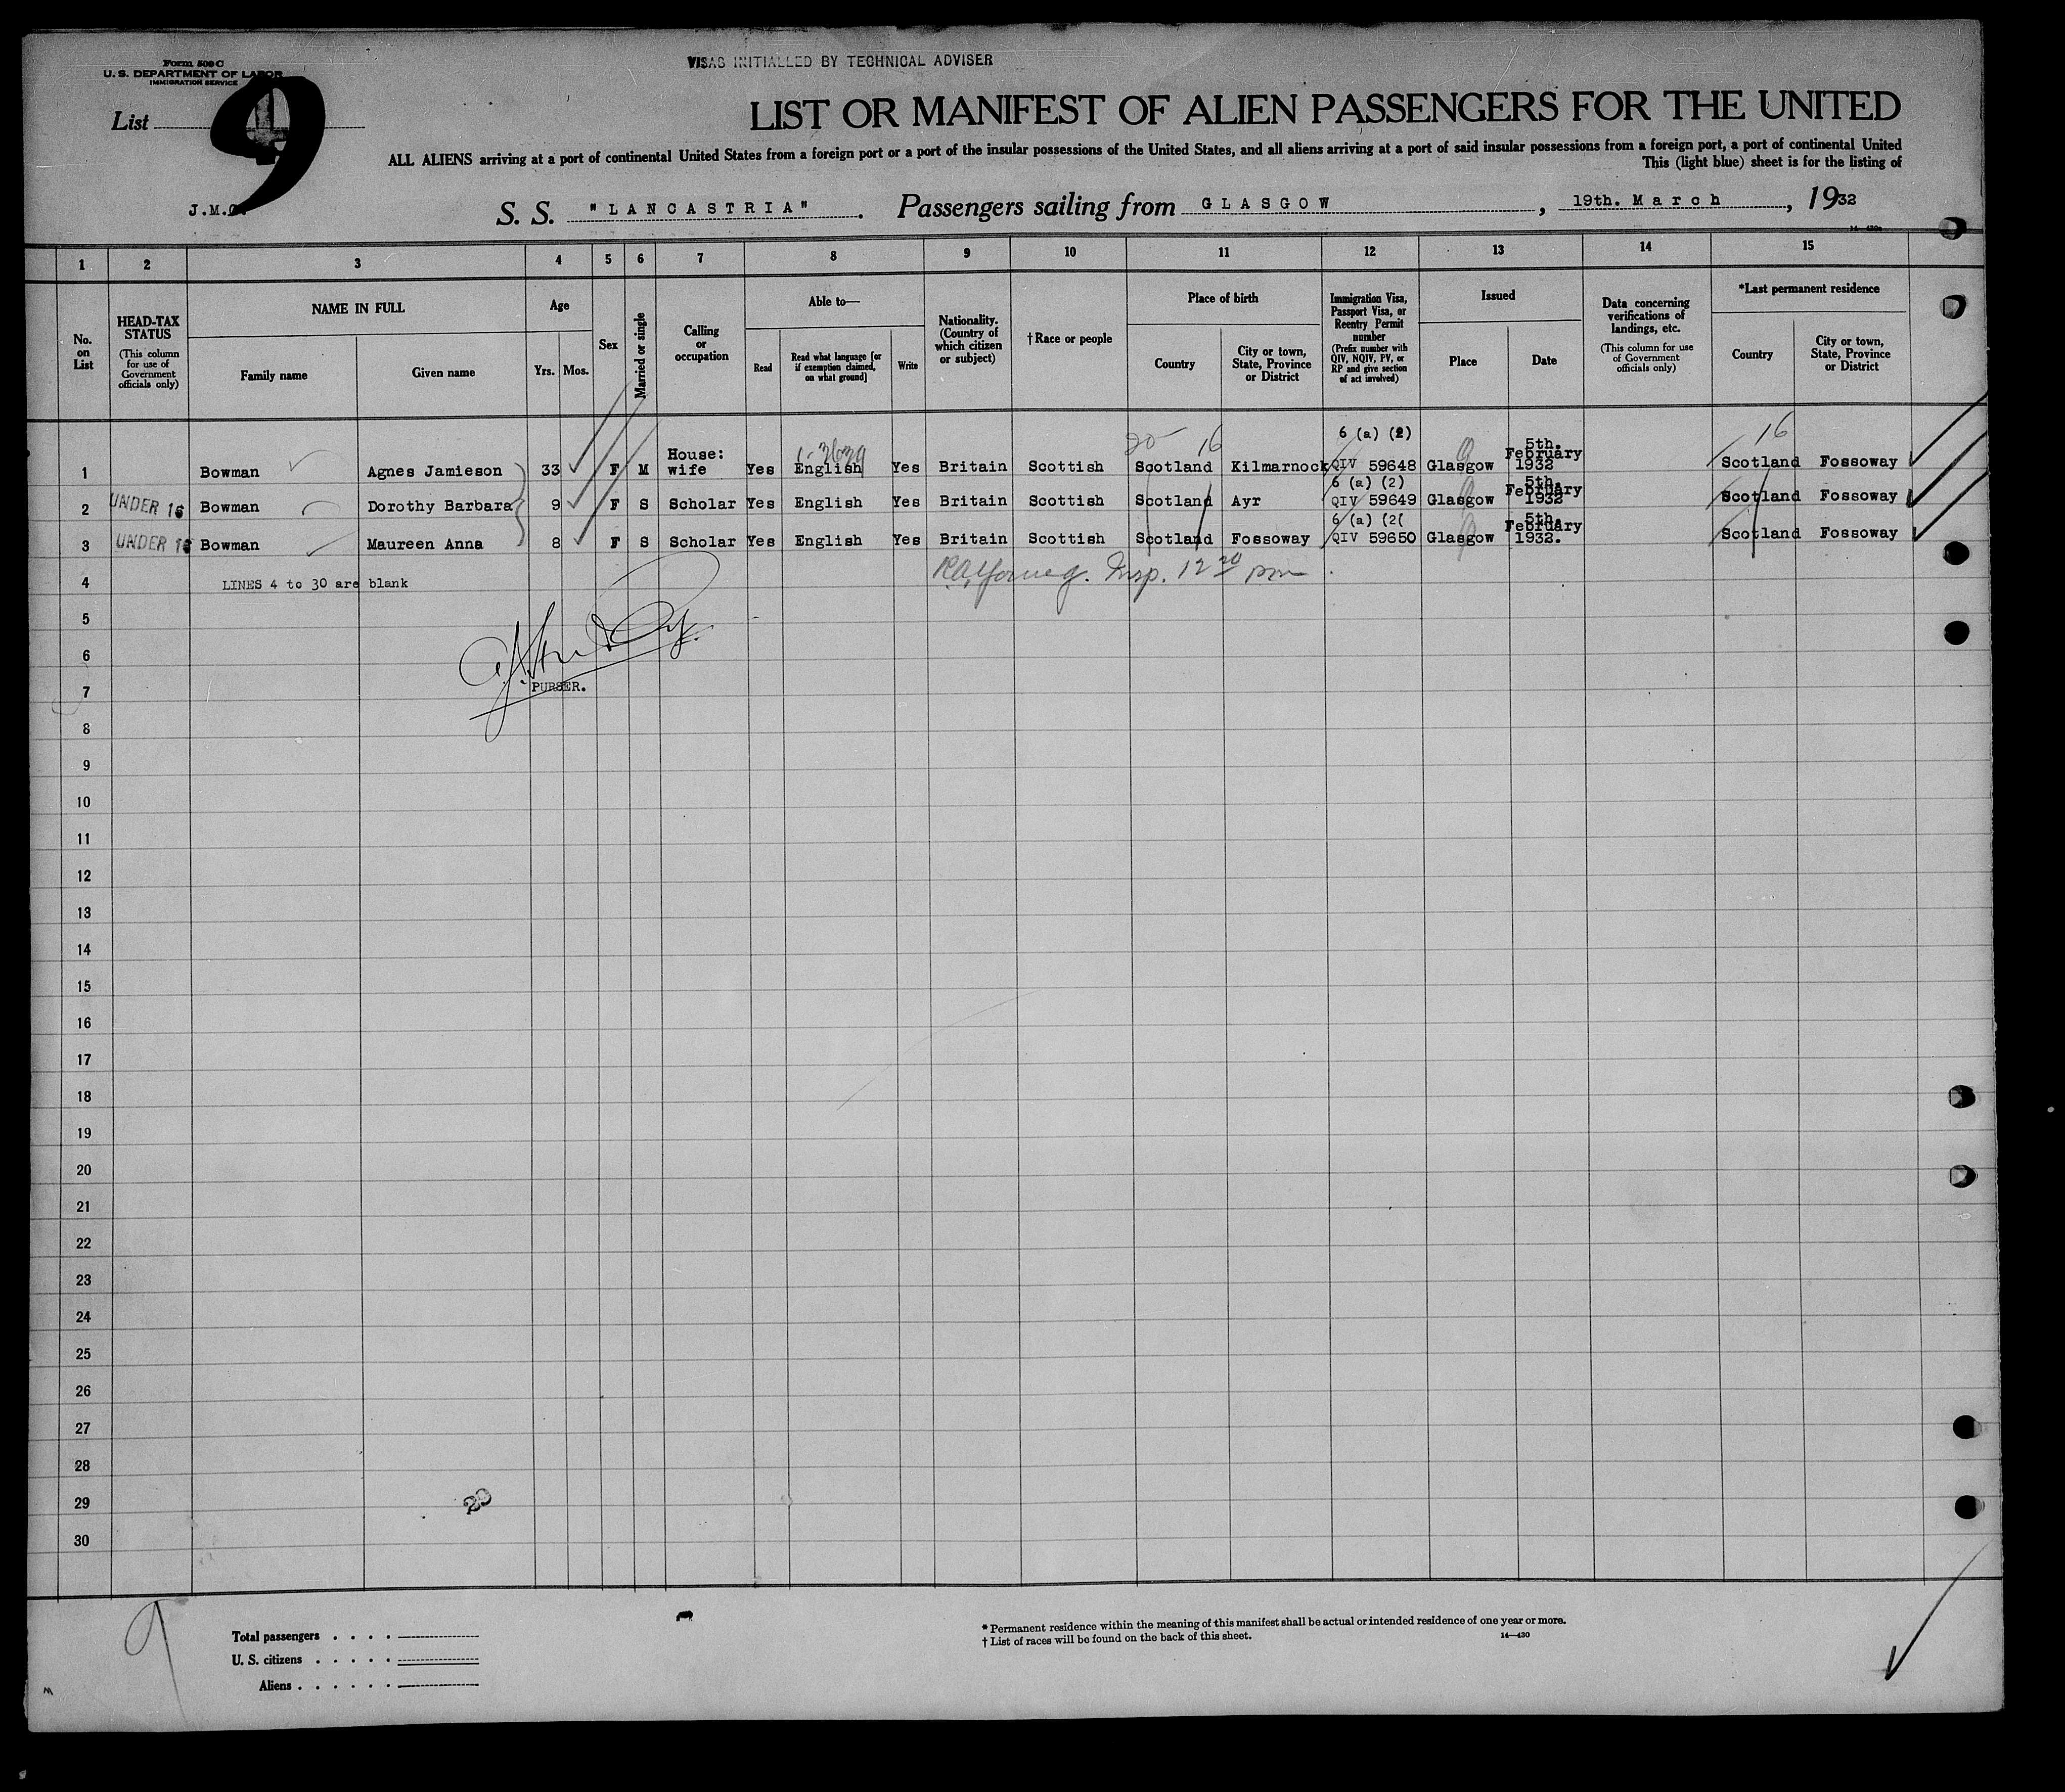 Form 500 C
U. S. DEPARTMENT OF LABOR
IMMIGRATION SERVICE
VISAS INITIALLED BY TECHNICAL ADVISER
List 9
LIST OR MANIFEST OF ALIEN PASSENGERS FOR THE UNITED
ALL ALIENS arriving at a port of continental United States from a foreign port or a port of the insular possessions of the United States, and all aliens arriving at a port of said insular possessions from a foreign port, a port of continental United
This (light blue) sheet is for the listing of
J.M.
S. S. "LANCASTRIA". Passengers sailing from GLASGOW, 19th. March, 1932
14—430
1 2 3 4 5 6 7 8 9 10 11 12 13 14 15
No. on List
HEAD-TAX STATUS
(This column for use of Government officials only)
NAME IN FULL
Family name
Given name
Age
Yrs. Mos.
Sex
Married or single
Calling or occupation
Able to—
Read
Read what language [or if exemption claimed, on what ground]
Write
Nationality. (Country of which citizen or subject)
†Race or people
Place of birth
Country
City or town, State, Province or District
Immigration Visa, Passport Visa, or Reentry Permit number
(Prefix number with QIV, NQIV, PV, or RP and give section of act involved)
Issued
Place
Date
Data concerning verifications of landings, etc.
(This column for use of Government officials only)
*Last permanent residence
Country
City or town, State, Province or District
20 16 16
1 Bowman Agnes Jamieson 33 F M House: wife Yes English Yes Britain Scottish Scotland Kilmarnock 6 (a) (2) QIV 59648 Glasgow 5th. February 1932 Scotland Fossoway
2 UNDER 16 Bowman Dorothy Barbara 9 F S Scholar Yes English Yes Britain Scottish Scotland Ayr 6 (a) (2) QIV 59649 Glasgow 5th. February 1932 Scotland Fossoway
3 UNDER 16 Bowman Maureen Anna 8 F S Scholar Yes English Yes Britain Scottish Scotland Fossoway 6 (a) (2( QIV 59650 Glasgow 5th. February 1932. Scotland Fossoway
4 LINES 4 to 30 are blank
Insp. 12 20 pm
5
6
7 PURSER.
8
9
10
11
12
13
14
15
16
17
18
19
20
21
22
23
24
25
26
27
28
29
30
9
Total passengers . . . .
U. S. citizens . . . . .
Aliens . . . . . .
* Permanent residence within the meaning of this manifest shall be actual or intended residence of one year or more.
† List of races will be found on the back of this sheet.
14—430